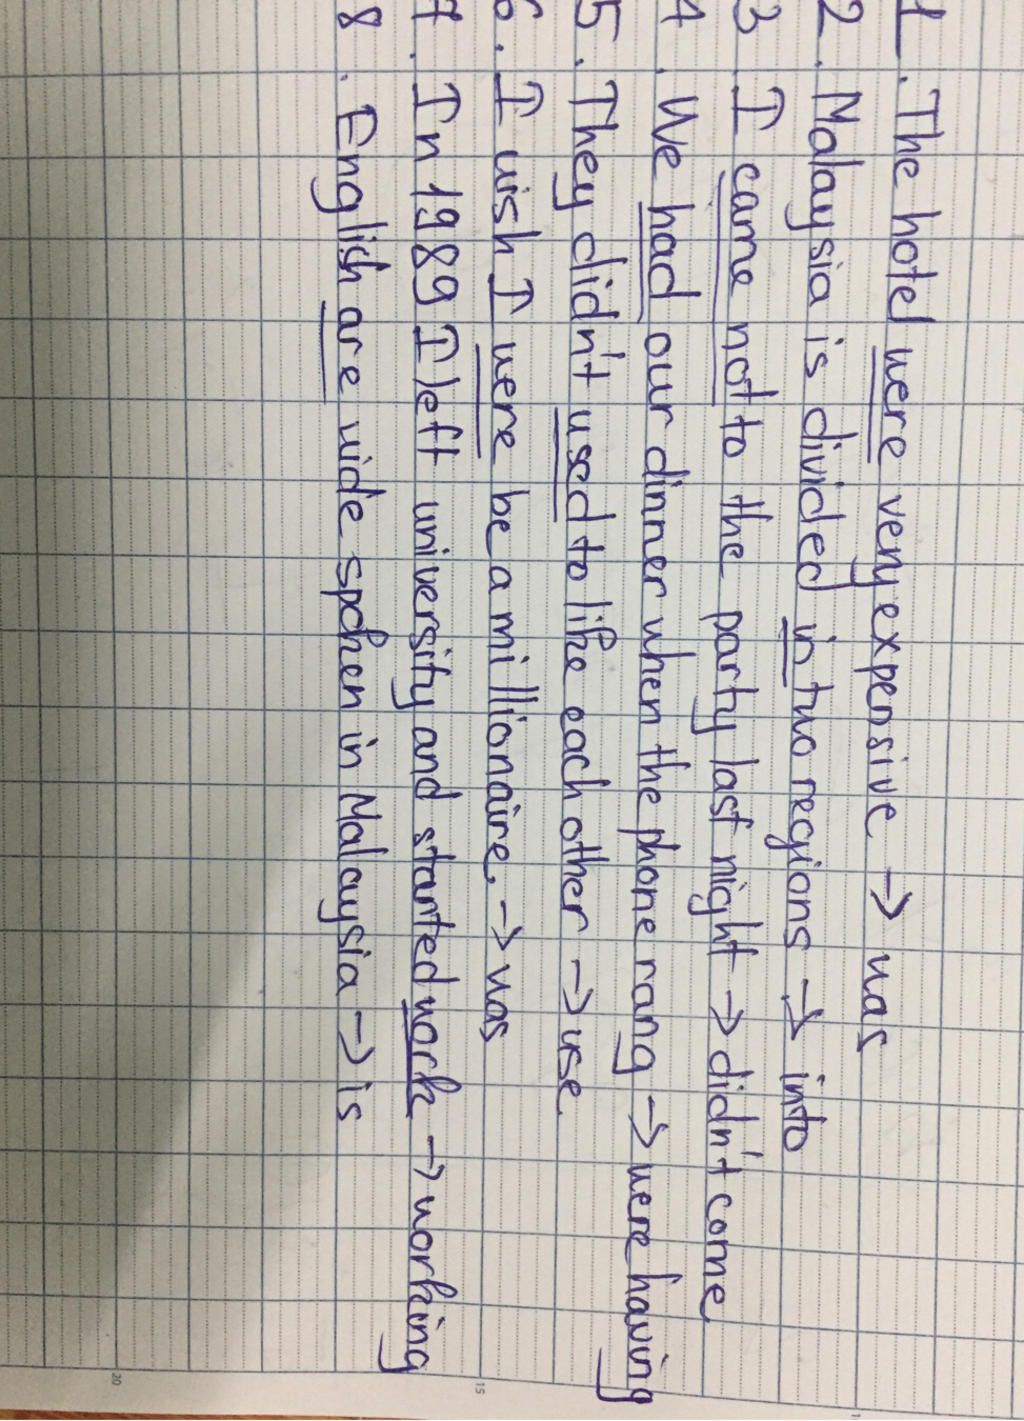 1. The hotel were very expensive → was
2. Malaysia is divided in two regions → into
3 I came not to the party last night → didn't come
4. We had our dinner when the phone rang → were having
5. They didn't used to like each other → use
6. I wish I were be a millionaire. → was
7. In 1989 I left university and started work → working
8. English are wide spoken in Malaysia → is
15
20